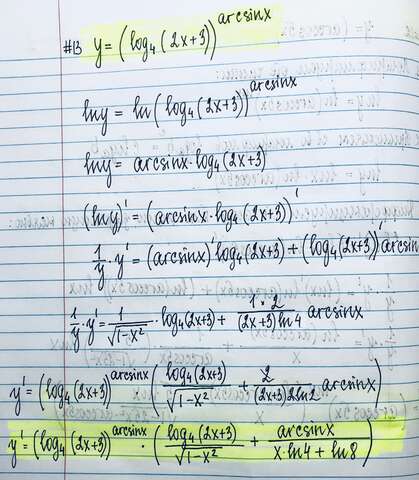 #13 y = (log₄(2x+3))^arcsinx
lny = ln(log₄(2x+3))^arcsinx
lny = arcsinx·log₄(2x+3)
(lny)' = (arcsinx·log₄(2x+3))'
1/y · y' = (arcsinx)' log₄(2x+3) + (log₄(2x+3))' arcsin
1/y · y' = 1/√(1-x²) · log₄(2x+3) + (1·2)/((2x+3)ln4) arcsinx
y' = (log₄(2x+3))^arcsinx (log₄(2x+3)/√(1-x²) + 2/((2x+3)2ln2) arcsinx)
y' = (log₄(2x+3))^arcsinx · (log₄(2x+3)/√(1-x²) + arcsinx/(x·ln4 + ln8))